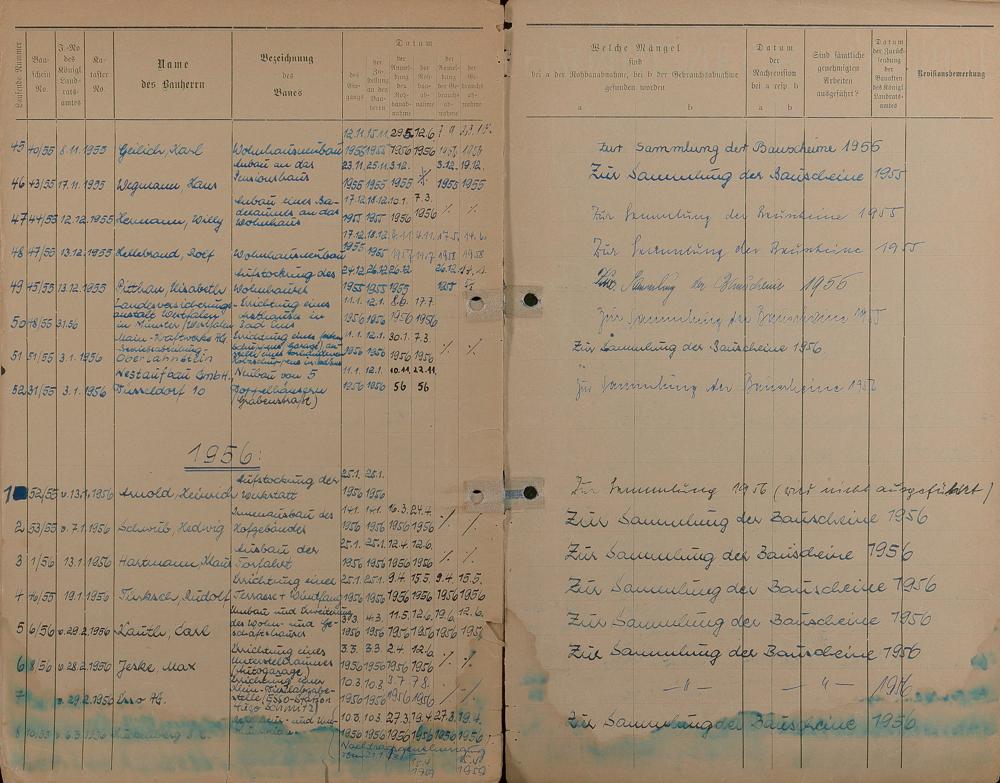 Laufende Nummer
Bau-schein No
J.-No des Königl. Land-rats-amtes
Ka-taster No
Name des Bauherrn
Bezeichnung des Baues
Datum
des Ein-gangs
der Zu-stellung an den Bau-herrn
der Anmel-dung der Roh-bauab-nahme
der Roh-bauab-nahme
der Anmel-dung der Ge-brauchs-abnahme
der Ge-brauchs-ab-nahme
Welche Mängel
sind
bei a der Rohbauabnahme, bei b der Gebrauchsabnahme
gefunden worden
a b
Datum der Nachrevision bei a resp. b
a b
Sind sämtliche genehmigten Arbeiten ausgeführt?
Datum der Zurück-sendung der Bauakten des Königl. Landrats-amtes
Revisionsbemerkung
45 40/55 8.11.1955 Geilich, Karl Wohnhausneubau 12.11. 15.11. 29.5. 12.6.
1955 1955 1956 1956
Zur Sammlung der Bauscheine 1956
46 43/55 17.11.1955 Wegmann, Hans Anbau an das Pensionshaus 23.11. 25.11. 3.12. % 3.12. 19.12.
1955 1955 1955 1955 1955
Zur Sammlung der Bauscheine 1955
47 44/55 12.12.1955 Hermann, Willy Anbau eines Ba-deraumes an das Wohnhaus 17.12. 18.12. 10.1. 7.3. % %
1955 1955 1956 1956
Zur Sammlung der Bauscheine 1955
48 47/55 13.12.1955 Hillebrand, Rolf Wohnhausneubau 17.12. 18.12.
1955 1955
Zur Sammlung der Bauscheine 1955
49 45/55 13.12.1955 Pitthan, Elisabeth Aufstockung des Wohnhauses 24.12. 26.12. 26.12. 26.12.
1955 1955 1955
Sammlung der Bauscheine 1956
50 48/55 Landesversicherungs-anstalt Westfalen in Münster/Westfalen Errichtung eines 11.1. 12.1. 8.6. 17.7.
1956 1956 1956 1956
Zur Sammlung der Bauscheine 1955
51 51/55 3.1.1956 Main-Kraftwerke AG. Oberlahnstein 11.1. 12.1. 30.1. 7.3.
1956 1956 1956 1956 % %
Zur Sammlung der Bauscheine 1956
52 31/55 3.1.1956 Westaufbau GmbH., Düsseldorf 10 Neubau von 5 Doppelhäusern (Grabenstraße) 11.1. 12.1. 10.11. 22.11.
1956 1956 56 56
Zur Sammlung der Bauscheine 1956
1956:
1 52/55 v. 13.1.1956 Arnold, Heinrich Aufstockung der Werkstatt 25.1. 25.1.
1956 1956
Zur Sammlung 1956 (wird nicht ausgeführt)
2 53/55 v. 7.1.1956 Hedwig Innenausbau des Hofgebäudes 14.1. 14.1. 16.3. 24.4.
1956 1956 1956 1956 % %
Zur Sammlung der Bauscheine 1956
3 1/56 13.1.1956 Hartmann, Klaus Ausbau der Torfahrt 25.1. 25.1. 12.4. 12.6.
1956 1956 1956 1956 % %
Zur Sammlung der Bauscheine 1956
4 46/55 19.1.1956 Rudolf Errichtung einer Terrasse + Windfang 25.1. 25.1. 9.4. 15.5. 9.4. 15.5.
1956 1956 1956 1956 1956 1956
Zur Sammlung der Bauscheine 1956
5 6/56 v. 29.2.1956 Kauth, Carl Umbau und Erweiterung des Wohn- und Ge-schäftshauses 3.3. 4.3. 11.5. 12.6. 19.6. 12.6.
1956 1956 1956 1956 1956 1956
Zur Sammlung der Bauscheine 1956
6 8/56 v. 28.2.1956 Jeske Max Errichtung eines Unterstellraumes (Autogarage) 3.3. 3.3. 2.4. 12.6.
1956 1956 1956 1956 % %
Zur Sammlung der Bauscheine 1956
7 v. 29.2.1956 Esso AG. Errichtung einer 10.3. 10.3. 3.7. 7.8.
1956 1956 1956 1956 % %
—"— —"— 1956
8 10.3. 10.3. 27.3. 19.4. 27.3. 19.4.
1956 1956 1956 1956 1956 1956
Zur Sammlung der Bauscheine 1956
(Nachtragsgenehmigung